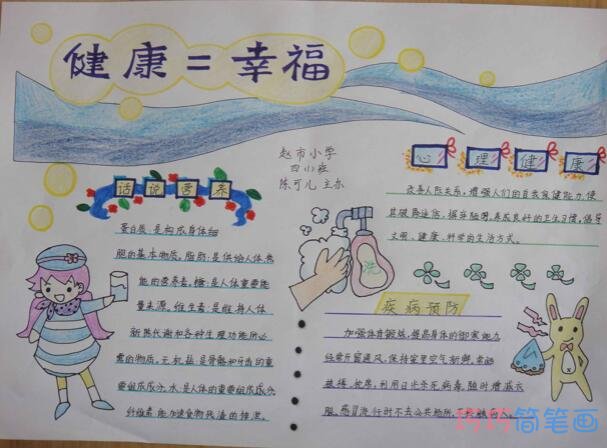 健康=幸福
赵市小学
四(1)班
陈可儿 主办
话说营养
蛋白质:是构成身体细
胞的基本物质。脂肪:是供给人体热
能的营养素。糖:是人体重要能
量来源。维生素:是维持人体
新陈代谢和各种生理功能所必
需的物质。无机盐:是骨骼和牙齿的重
要组成成分。水:是人体的重要组成成分。
纤维素:能加速食物残渣的排泄。
心理健康
改善人际关系,增强人们的自我保健能力,使
其破除迷信,摒弃陋习,养成良好的卫生习惯,倡导
文明、健康、科学的生活方式。
洗
疾病预防
加强体育锻炼,提高身体的御寒能力
经常开窗通风,保持室里空气新鲜,常晒
被褥、衣服,利用日光杀死病毒,随时增减衣
服。感冒流行时不去公共场所,
巧巧简笔画